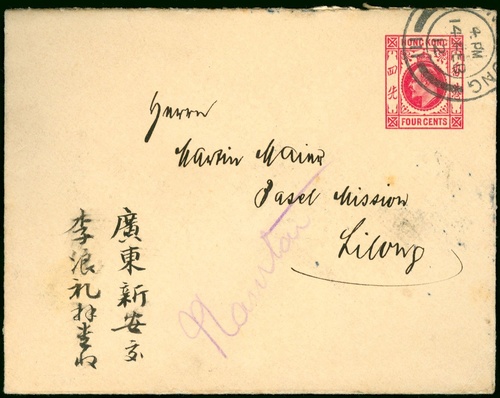 HONG KONG
四先
FOUR CENTS
4 PM
14 FEB
Herrn
Martin Maier
Basel Mission
Lilong
廣東新安交
李浪礼拜堂收